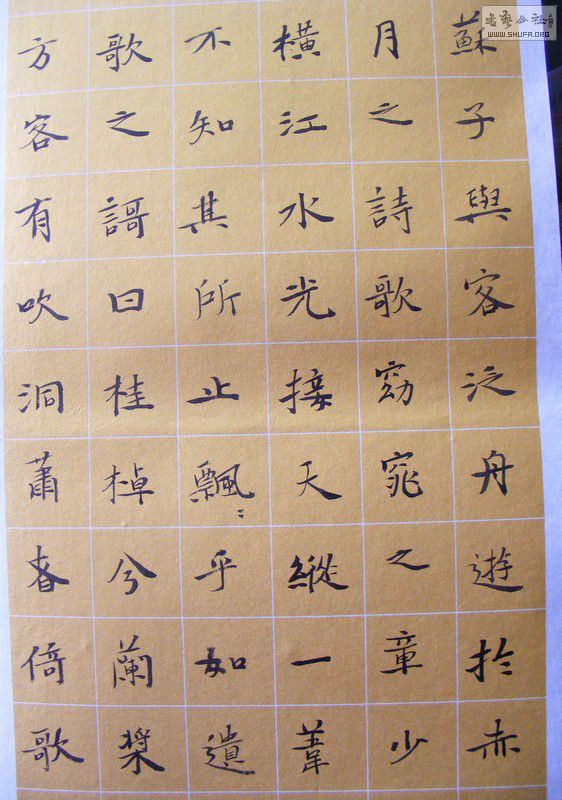 蘇子與客泛舟遊扵赤
月之詩歌窈窕之章少
橫江水光接天縱一葦
不知其所止飄〻乎如遺
歌之謌曰桂棹兮蘭槳
方客有吹洞蕭者倚歌
书艺公社
WWW.SHUFA.ORG